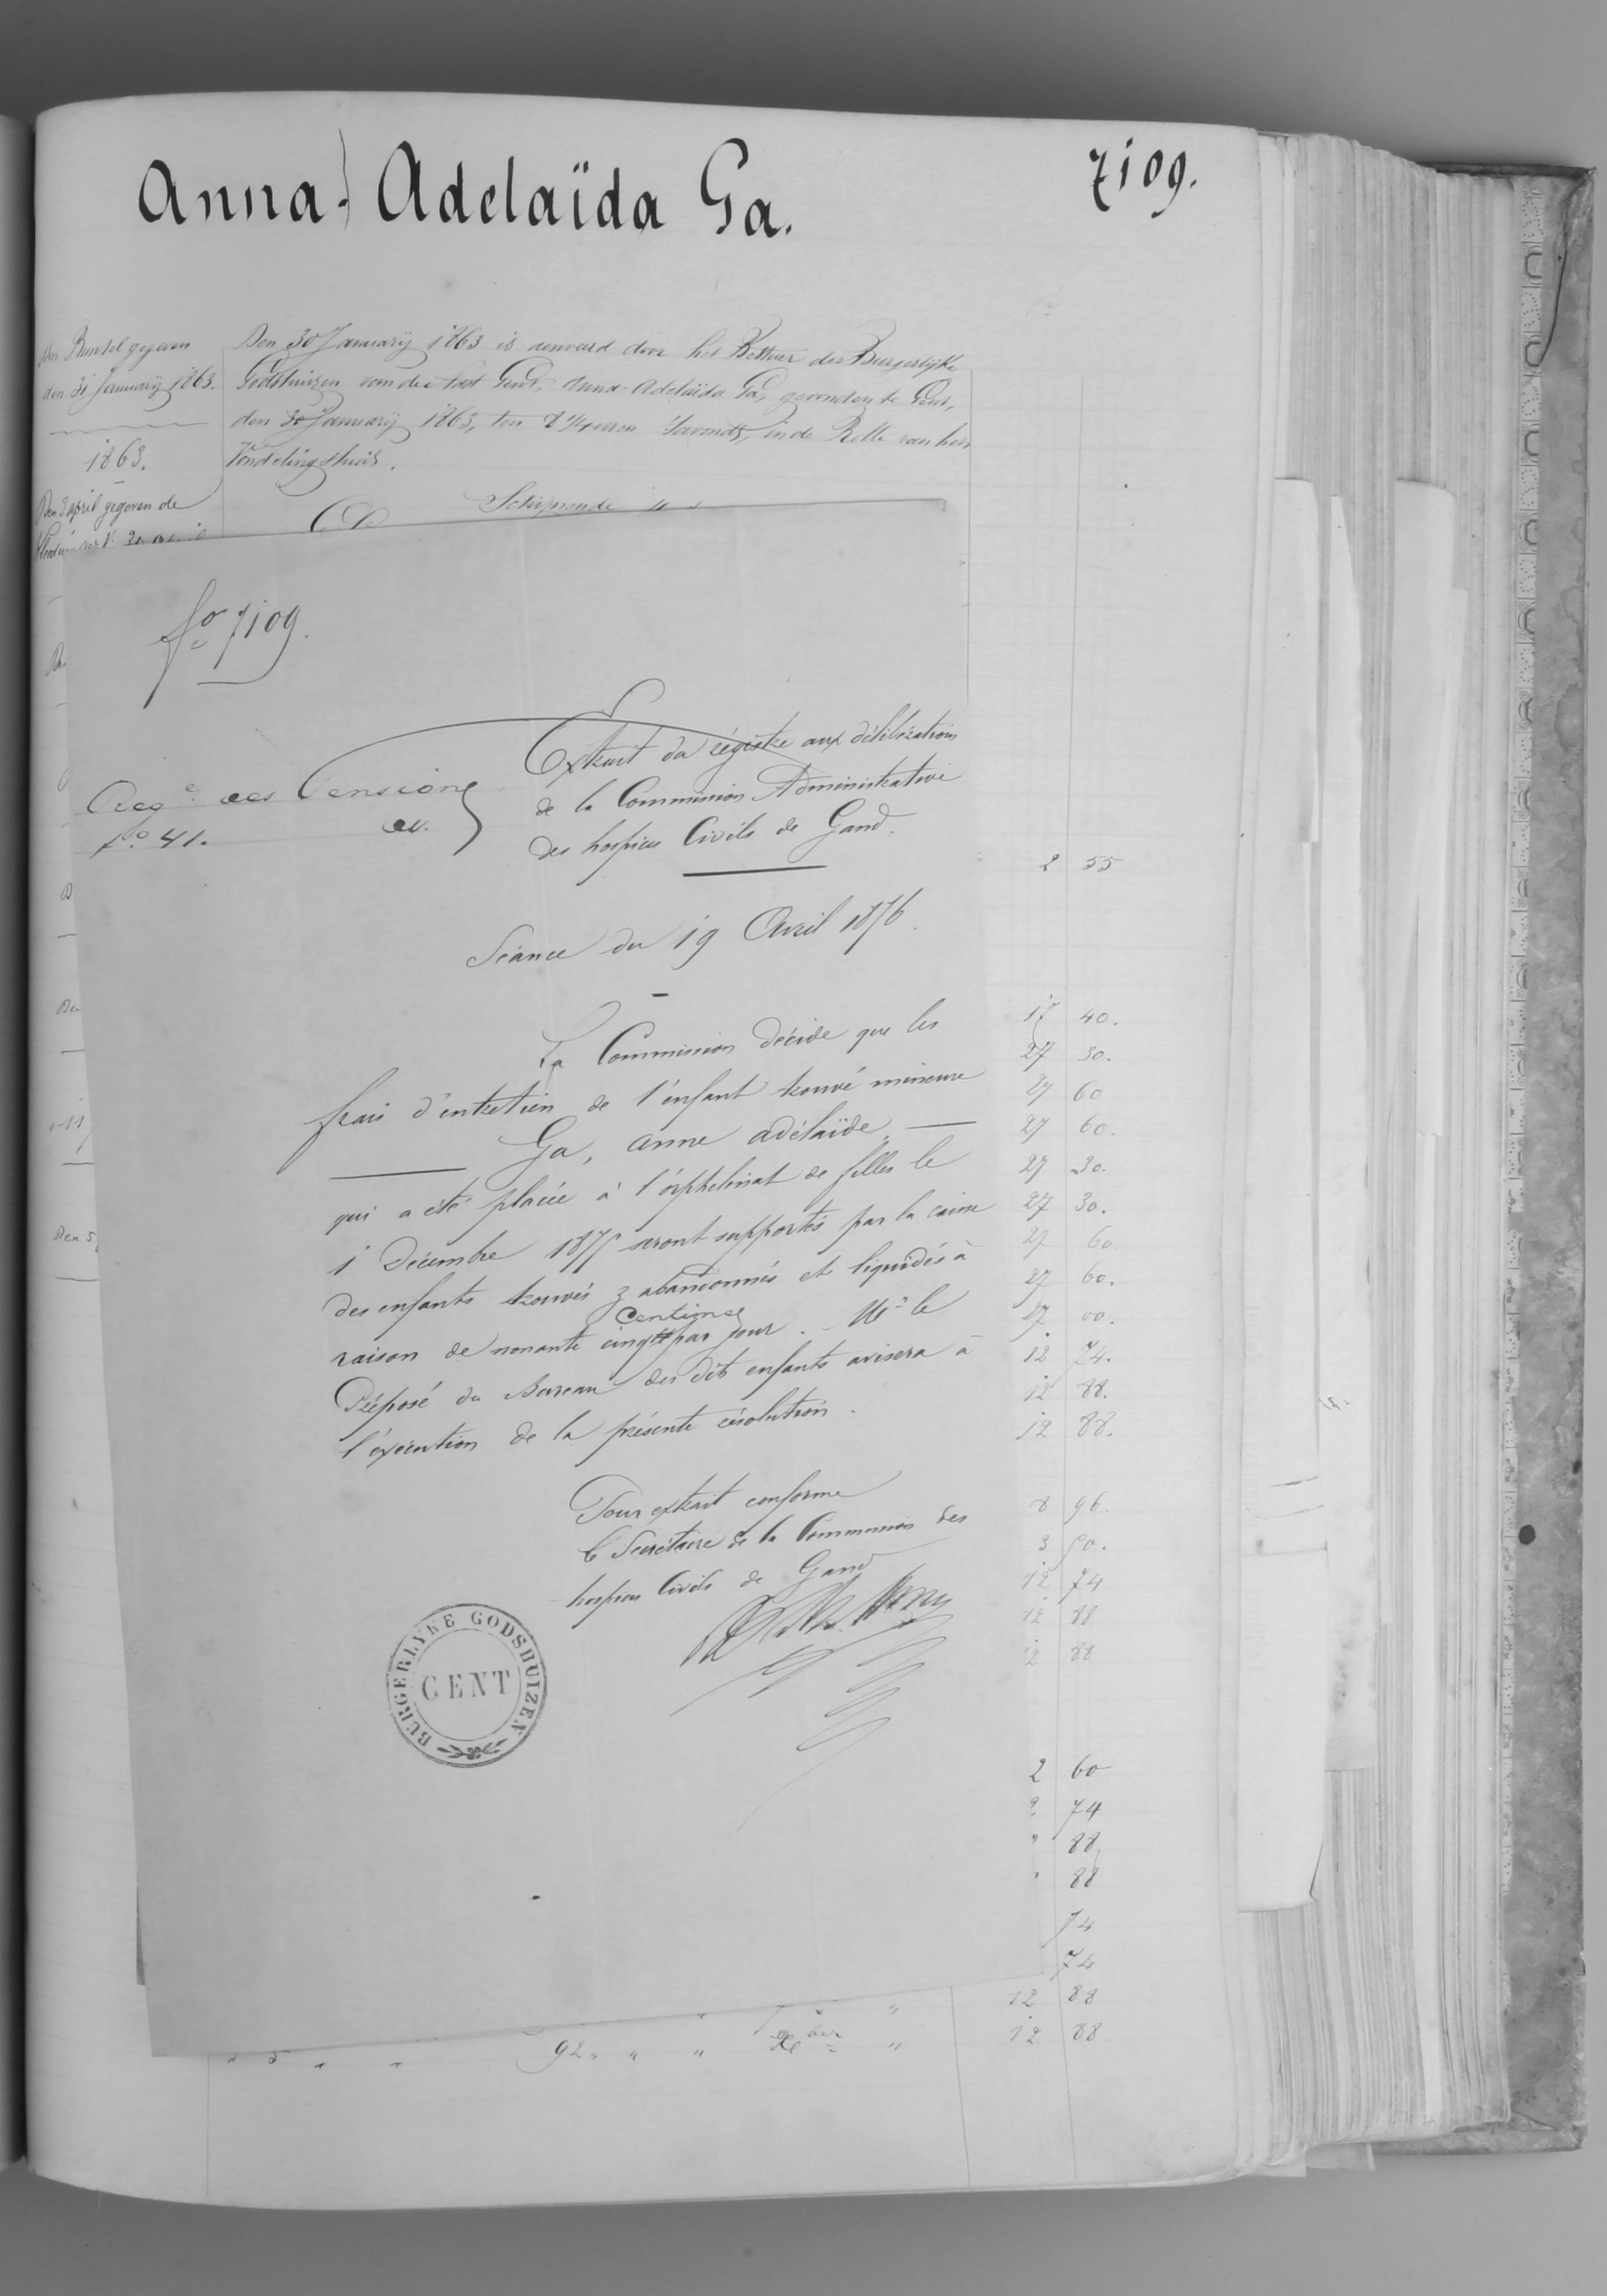 Anna-Adelaïda Ga.
7109.
den Bundel gegeven
den 31 Januarij 1863.
1863.
Den 3 april gegeven de
Den 30 Januarij 1863 is aenveerd door het Bestuer der Burgerlijke
Godshuizen van der stad Gent, Anna-Adelaïda Ga, gevonden te Gent,
den 30 Januarij 1863, ten 8 1/4 uren 'savonds, in de Rolle van het
Vondelingshuis.
fo 7109.
Reg.e des Pensions
fo 41.
Extrait du régistre aux délibérations
de la Commission Administrative
des hospices Civils de Gand.
Séance du 19 Avril 1876.
La Commission décide que les
frais d'entretien de l'enfant trouvé mineure
Ga, anne adélaïde
qui a été placée à l'orphelinat de filles le
1 Décembre 1875 seront supportés par la caisse
des enfants trouvés & abandonnés et liquidés à
centimes
raison de nonante cinq par jour. Mr le
Préposé du Bureau des dits enfants avisera à
l'exécution de la présente résolution.
Pour extrait conforme
Le Secrétaire de la Commission des
hospices Civils de Gand
BURGERLYKE GODSHUIZEN
GENT
2 55
17 40.
27 30.
27 60
27 60.
27 30.
27 30.
27 60.
27 60.
27 00.
12 74.
12 88.
12 88.
8 96.
3 50.
12 74
12 88
12 88
2 60
74
88
88
74
74
12 88
12 88
" " " 92 " " Xber "
Den 5